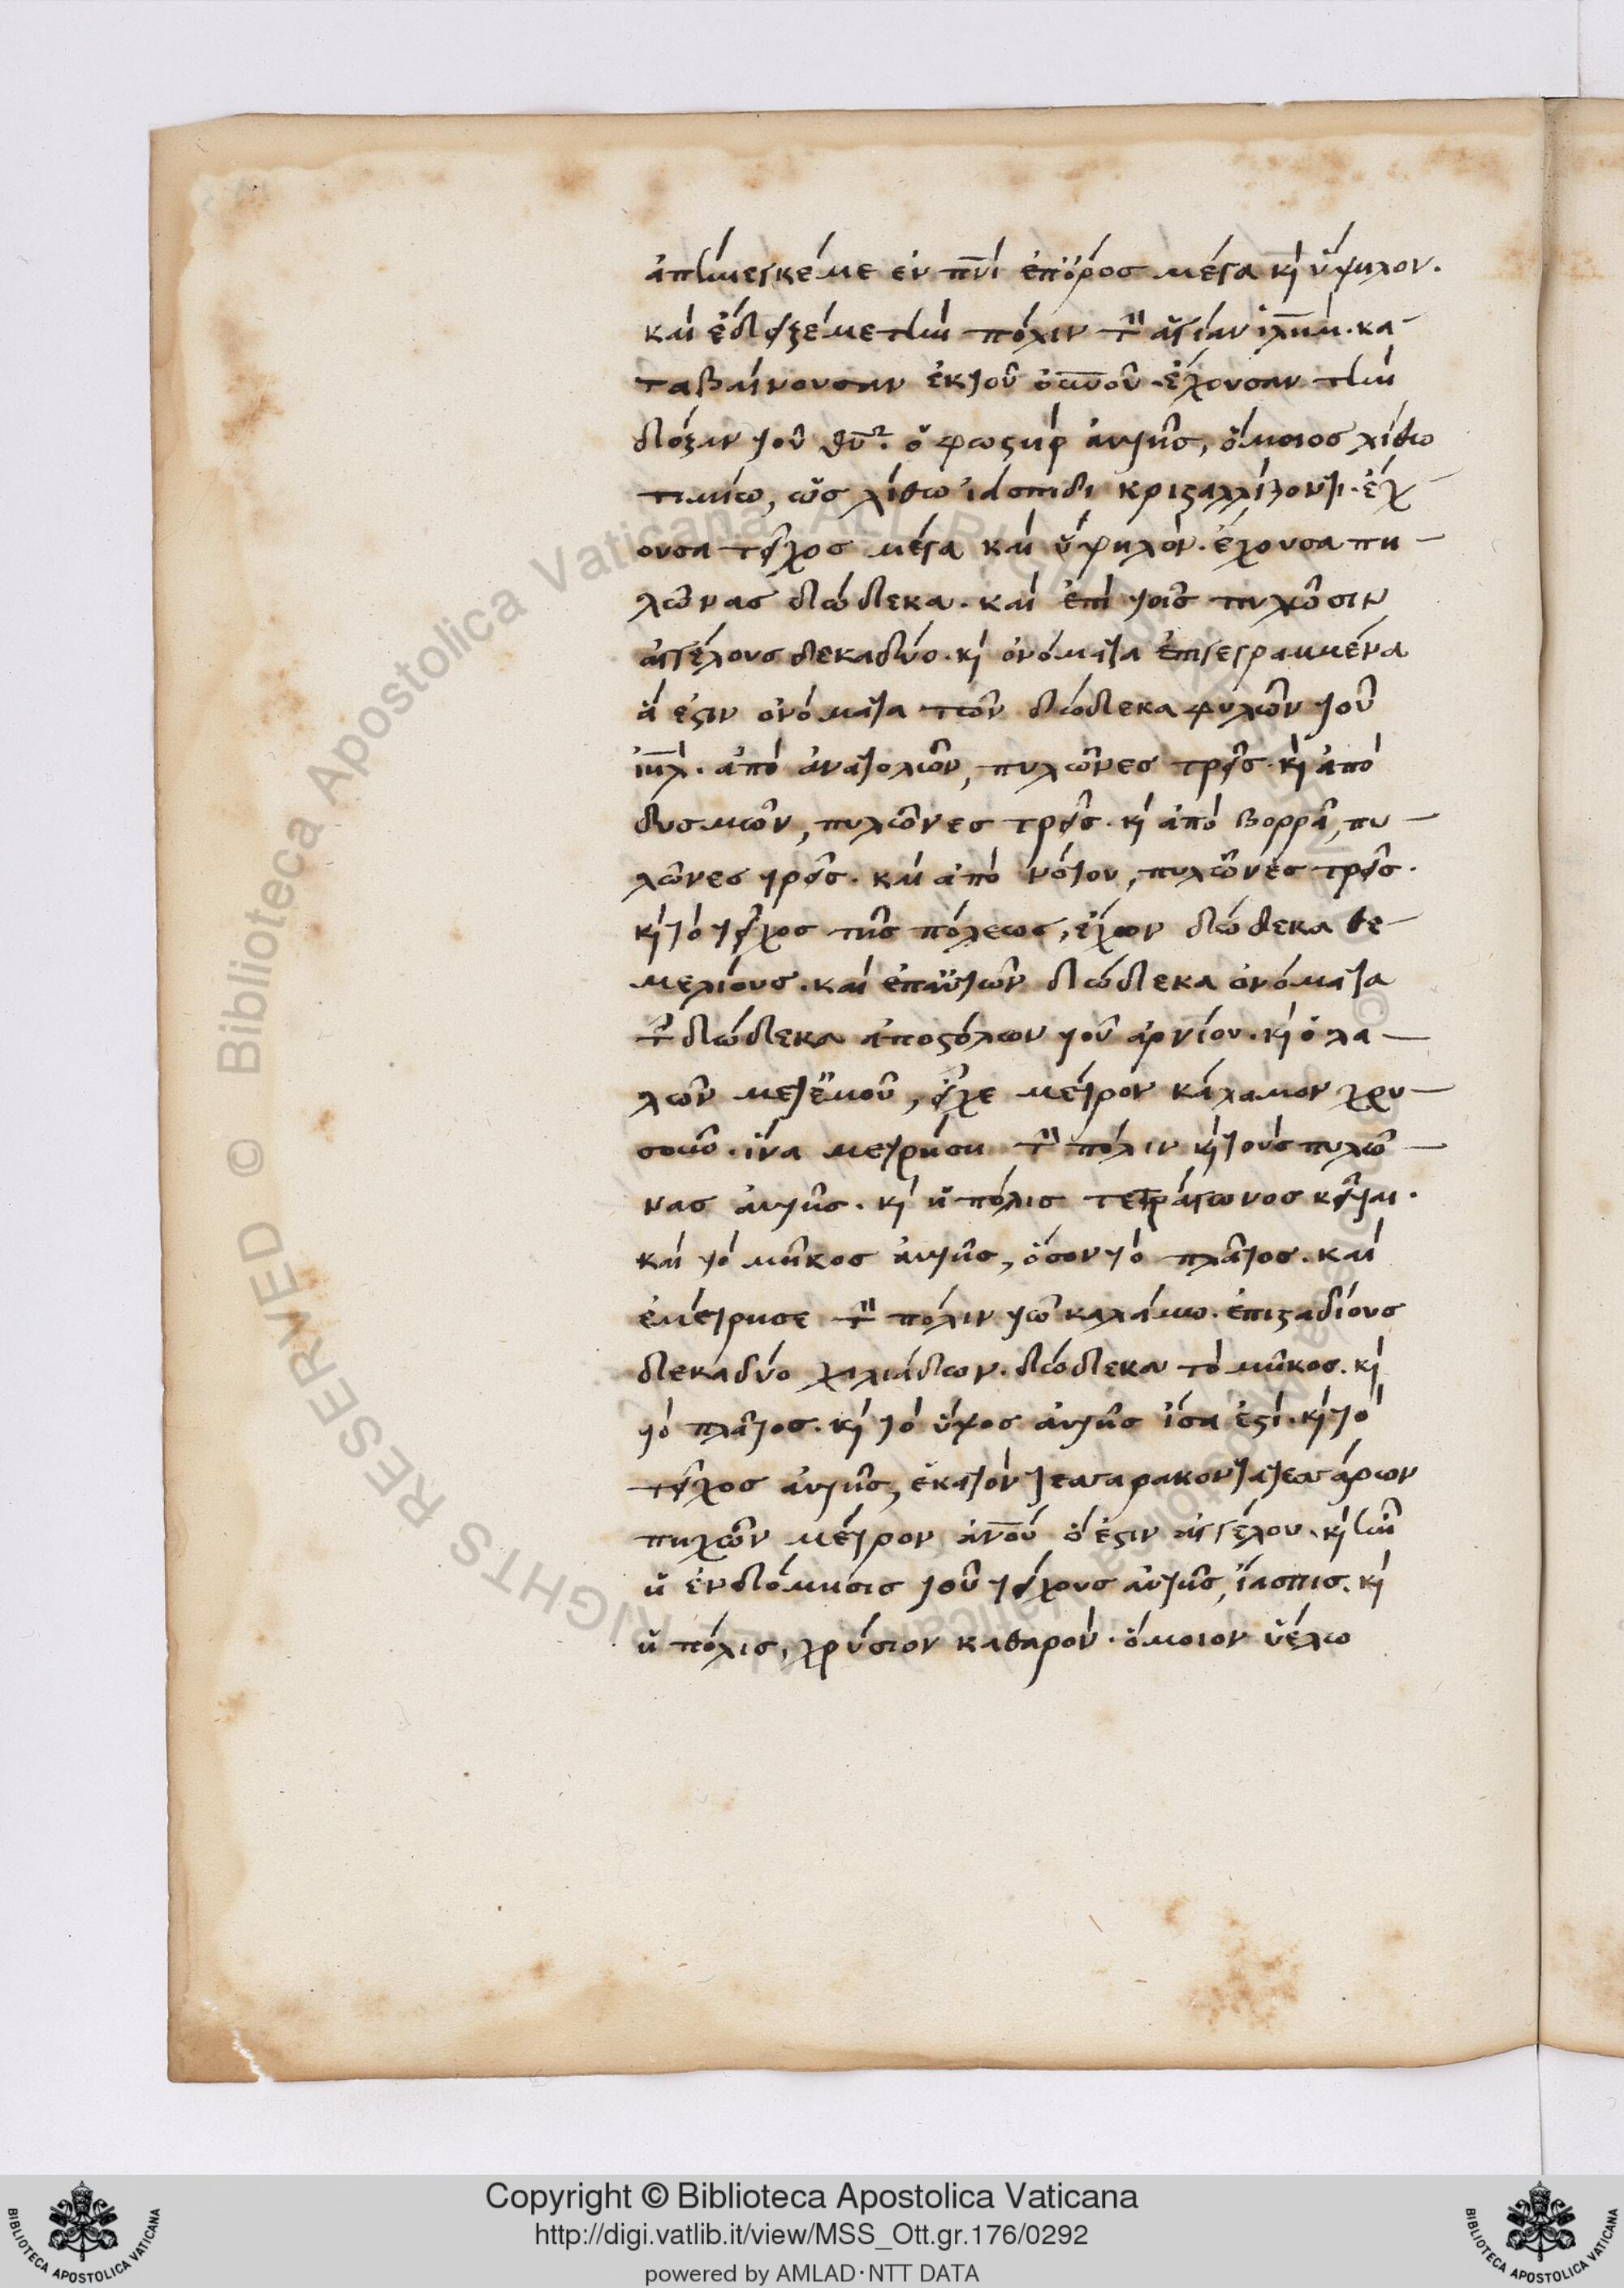 ἀπήνεγκέ με ἐν πνι ἐπ' ὄρος μέγα κὶ ὑψηλον.
καὶ ἔδειξέ με τὴν πόλιν τὴν ἁγίαν ιλημ. κα-
ταβαίνουσαν ἐκ τοῦ ουνου. ἔχουσαν τὴν
δόξαν τοῦ θυ. ὁ φωστὴρ ἀυτῆς, ὅμοιος λίθω
τιμίω, ὡς λίθω ἰάσπιδι κρισταλλίζοντι. ἔχ-
ουσα τεῖχος μέγα καὶ ὑψηλὸν. ἔχουσα πυ-
λῶνας δώδεκα. καὶ ἐπὶ τοῖς πυλῶσιν
ἀγγέλους δεκαδύο. κὶ ὀνόματα ἐπιγεγραμμένα
ἅ ἐστιν ὀνόματα τῶν δώδεκα φυλῶν τοῦ
ιηλ. ἀπὸ ἀνατολῶν, πυλῶνες τρεῖς. κὶ ἀπὸ
δυσμῶν, πυλῶνες τρεῖς. κὶ ἀπὸ βορρᾶ, πυ-
λῶνες τρεῖς. καὶ ἀπὸ νότου, πυλῶνες τρεῖς.
κὶ τὸ τεῖχος τῆς πόλεως, ἔχων δώδεκα θε-
μελίους. καὶ ἐπ' αὐτῶν δώδεκα ὀνόματα
τῶν δώδεκα ἀποστόλων τοῦ ἀρνίου. κὶ ὁ λα-
λῶν μετ' ἐμοῦ, εἶχε μέτρον κάλαμον χρυ-
σοῦν. ἵνα μετρήση τὴν πόλιν κὶ τοὺς πυλῶ-
νας ἀυτῆς. κὶ ἡ πόλις τετράγωνος κεῖται.
καὶ τὸ μῆκος ἀυτῆς, ὅσον τὸ πλάτος. καὶ
ἐμέτρησε τὴν πόλιν τῶ καλάμω. ἐπὶ σταδίους
δεκαδύο χιλιάδων. δώδεκα τὸ μῆκος. κὶ
τὸ πλάτος. κὶ τὸ ὕψος ἀυτῆς ἴσα ἐστί. κὶ τὸ
τεῖχος ἀυτῆς, ἑκατὸν τεσσαρακοντατεσσάρων
πηχῶν μέτρον ἀνου ὅ ἐστιν ἀγγέλου. κὶ ἦν
ἡ ἐνδόμησις τοῦ τείχους ἀυτῆς, ἴασπις. κὶ
ἡ πόλις, χρύσιον καθαρὸν. ὅμοιον ὑέλω
Copyright © Biblioteca Apostolica Vaticana
http://digi.vatlib.it/view/MSS_Ott.gr.176/0292
powered by AMLAD·NTT DATA
BIBLIOTECA APOSTOLICA VATICANA
BIBLIOTECA APOSTOLICA VATICANA